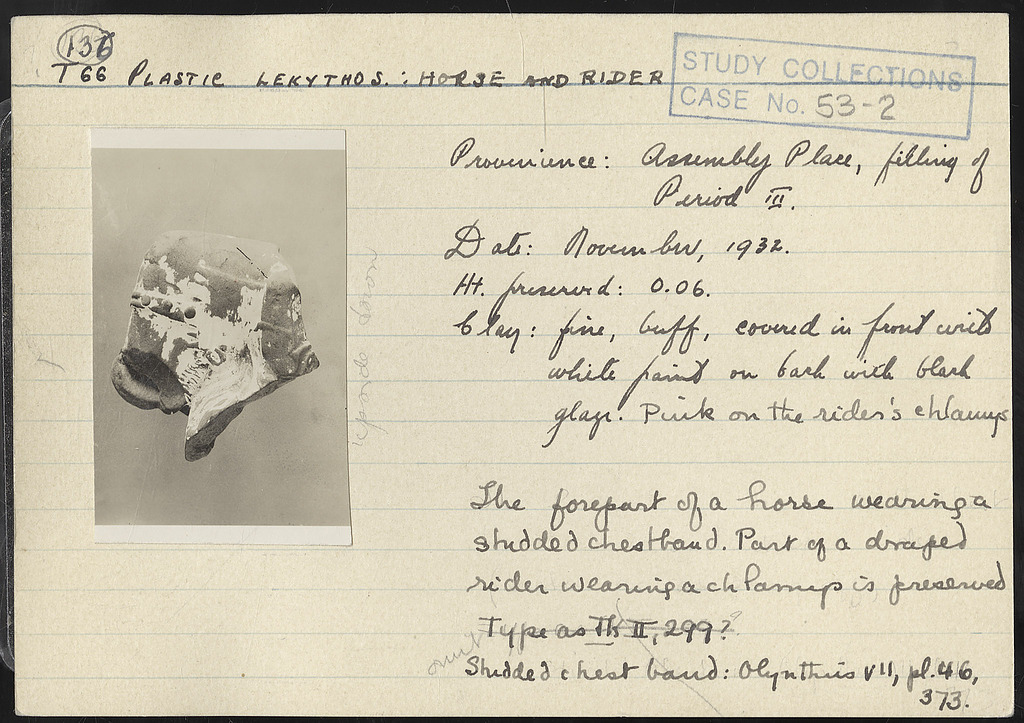 136
T 66 PLASTIC LEKYTHOS : HORSE AND RIDER
STUDY COLLECTIONS
CASE No. 53-2
Provenience: Assembly Place, filling of
Period III.
Date: November, 1932.
Ht. preserved: 0.06.
Clay: fine, buff, covered in front with
white paint on back with black
glaze. Pink on the rider's chlamys
upside down
The forepart of a horse wearing a
studded chestband. Part of a draped
rider wearing a chlamys is preserved
Type as Th II, 299?
omit
Studded chest band: Olynthus VII, pl. 46,
373.